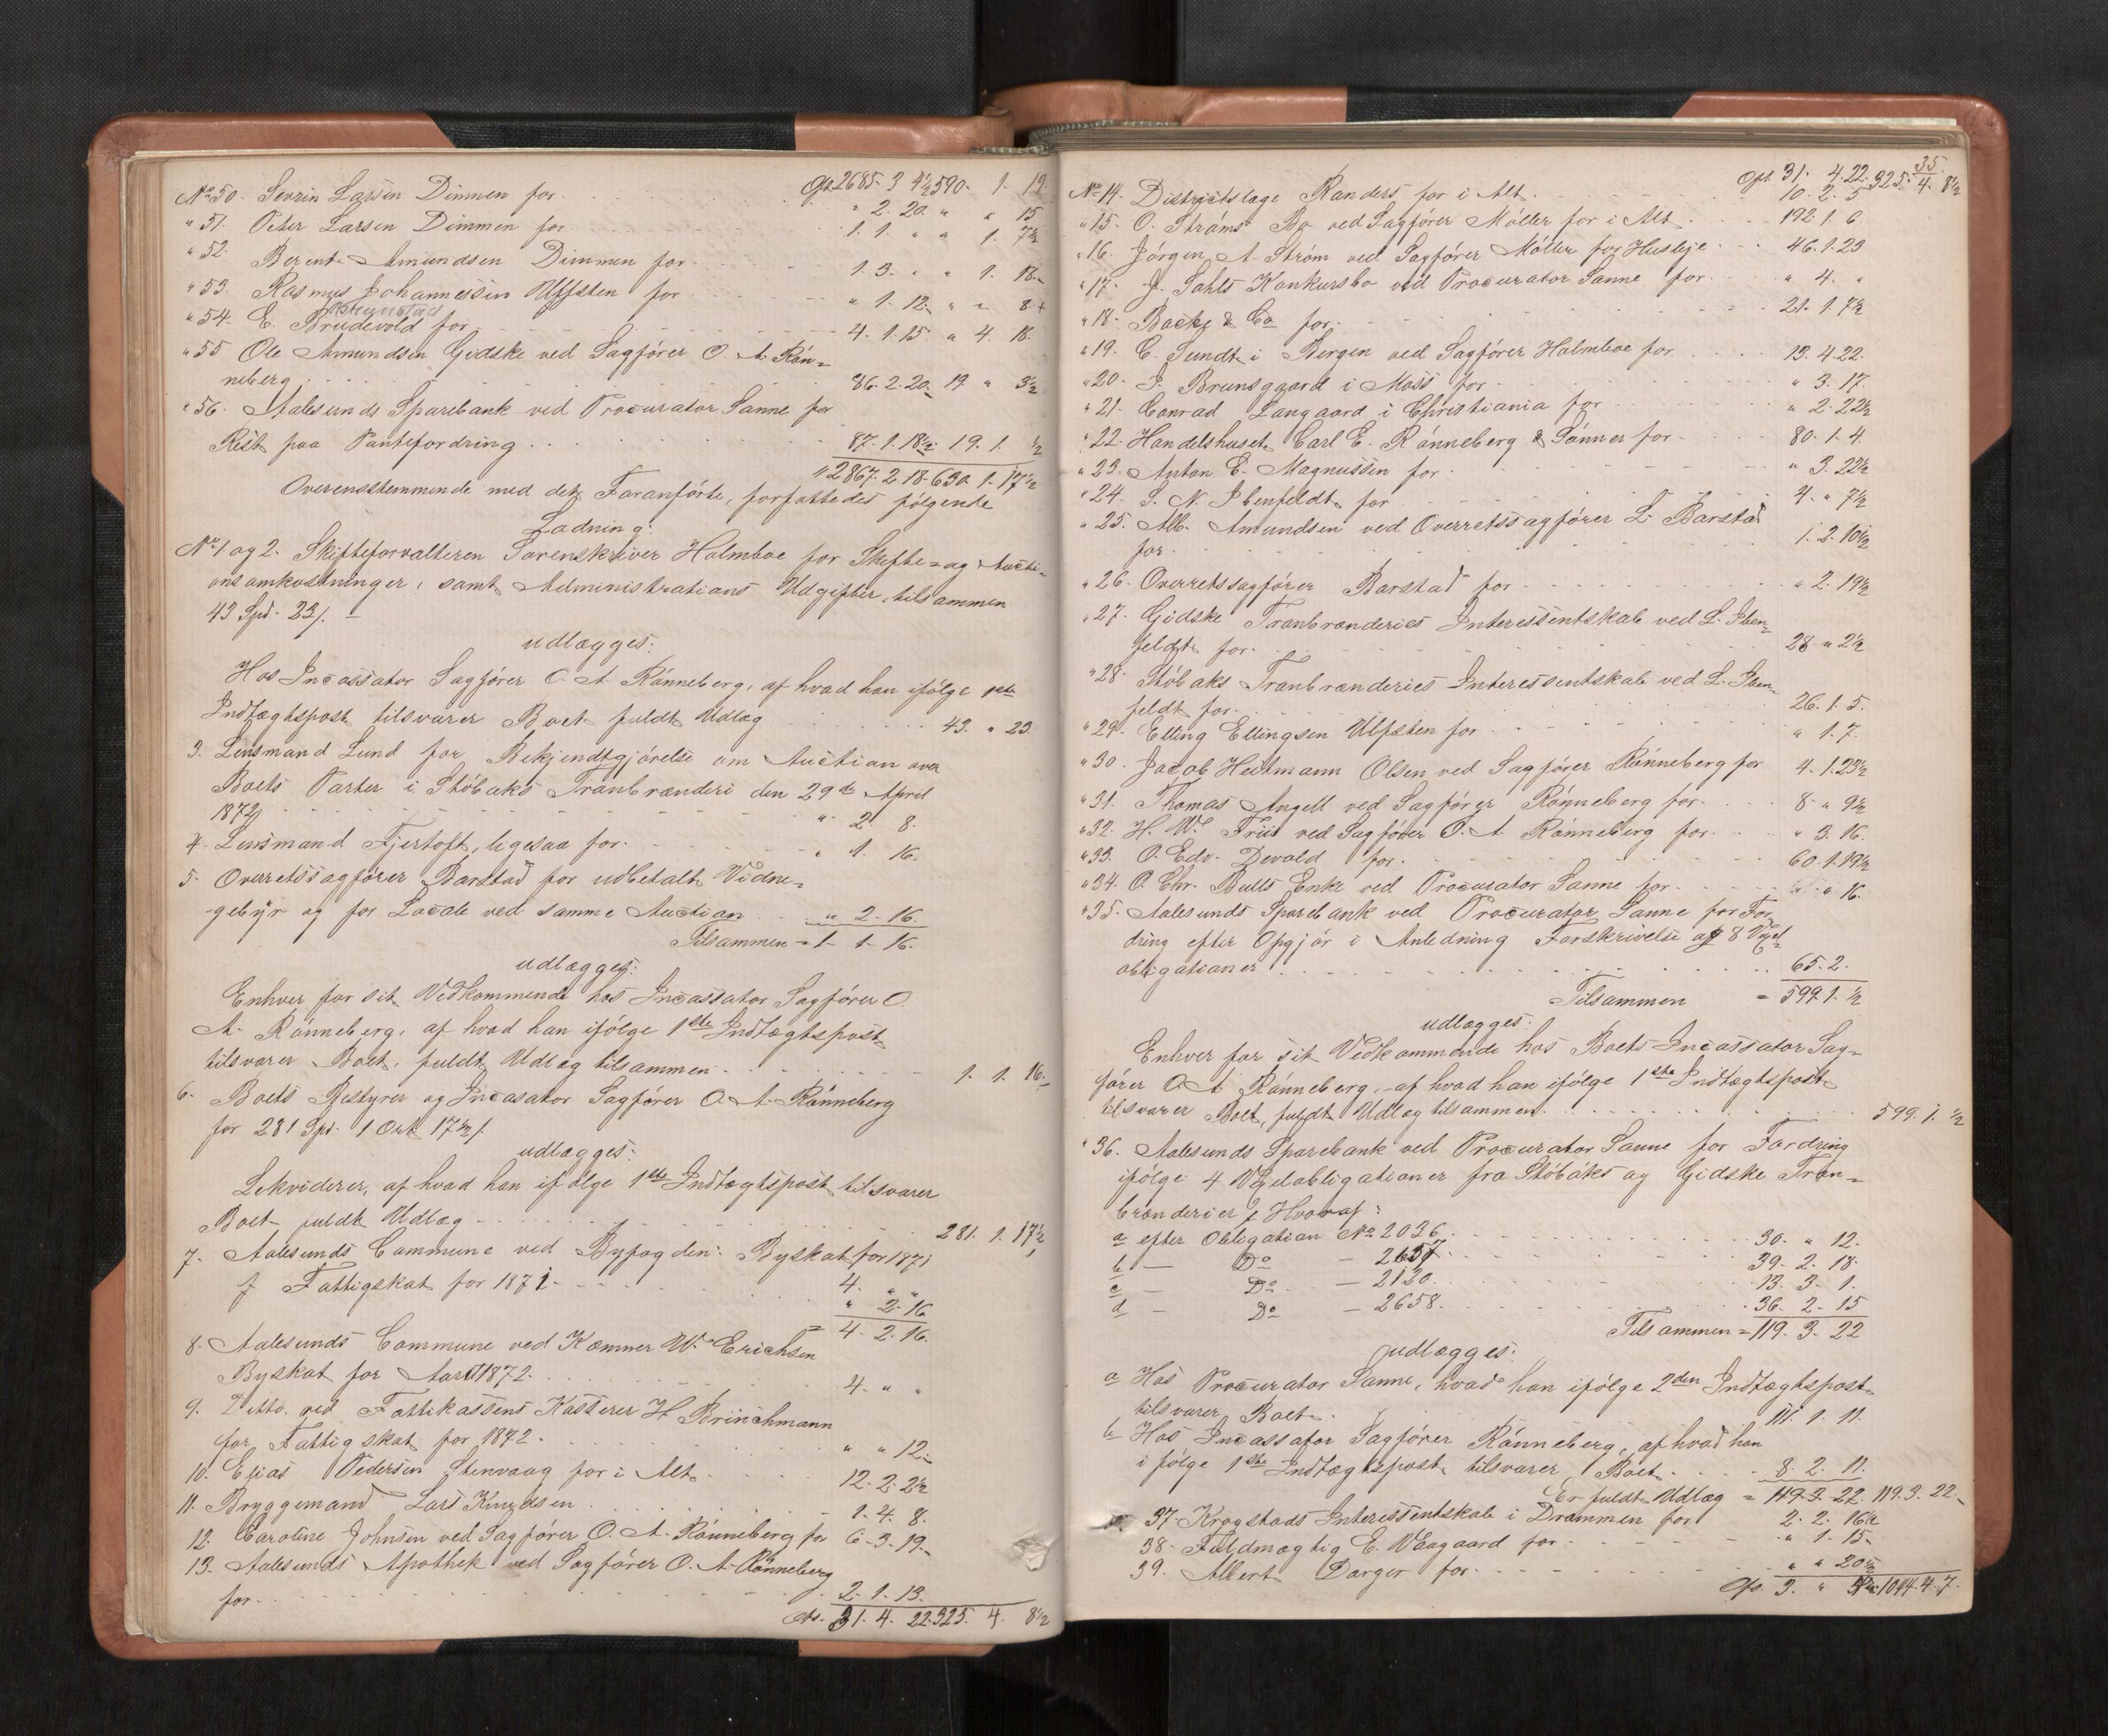 Opt. 2685. 3 4½ 590. 1. 19
No 50. Sevrin Larsen Dimmen for " 2. 20. " " 15
" 51. Peter Larsen Dimmen for 1. 1. " " 1. 7½
" 52. Berent Amundsen Dimmen for 1. 3. " " 1. 18.
" 53. Rasmus Johannessen Ulfsten for " 1. 12. " " 8
" 54. E. Brudevold for 4. 1. 15. " 4. 18.
" 55 Ole Amundsen Gidske ved Sagfører O. A. Røn=
neberg 86. 2. 20. 19 " 3½
" 56. Aalesunds Sparebank ved Procurator Sanne for
Rest paa Pantefordring 87. 1. 18½ 19. 1. ½
" 2867. 2. 18. 630. 1. 17½
Overensstemmende med det Foranførte, forfattedes følgende
Ladning:
No 1 og 2. Skifteforvalteren Sorenskriver Holmboe for Skifte= og Aucti=
onsomkostninger, samt Administrations Udgifter, tilsammen
43 Spd. 23 s.
udlægges:
Hos Incassator Sagfører O. A. Rønneberg, af hvad han ifølge 1ste
Indtægtspost tilsvarer Boet fuldt Udlæg 43. " 23.
3. Lensmand Lund for Bekjendtgjørelse om Auction over
Boets Parter i Støbaks Tranbrænderi den 29de April
1872 " 2. 8.
4. Lensmand Fjertoft, ligesaa for " 1. 16.
5. Overretssagfører Barstad for udbetalt Vidne=
gebyr og for Locale ved samme Auction " 2. 16.
Tilsammen = 1. 1. 16.
udlægges:
Enhver for sit Vedkommende hos Incassator Sagfører O.
A. Rønneberg, af hvad han ifølge 1ste Indtægtspost
tilsvarer Boet, fuldt Udlæg tilsammen 1. 1. 16.
6. Boets Bestyrer og Incasator Sagfører O. A. Rønneberg
for 281 Spd. 1 Ort 17½ s.
udlægges:
Lekviderer, af hvad han ifølge 1ste Indtægtspost tilsvarer
Boet fuldt Udlæg 281. 1. 17½
7. Aalesunds Commune ved Byfogden: Byskat for 1871
4. " "
f Fattigskat for 1871 " 2. 16
= 4. 2. 16.
8. Aalesunds Commune ved Kæmner W. Erichsen
Byskat for Aaret 1872. 4. " "
9. Ditto. ved Fattikassens Kasserer H Brinchmann
for Fattigskat for 1872. " " 12.
10. Elias Pedersen Stenvaag for i Alt 12. 2. 2½
11. Bryggemand Lars Knudsen 1. 4. 8.
12. Caroline Johnsen ved Sagfører O. A. Rønneberg for 6. 3. 19.
13. Aalesunds Apothek ved Sagfører O. A. Rønneberg
for 2. 1. 13.
Opt. 31. 4. 22. 325. 4. 8½
35
Opt. 31. 4. 22. 325. 4. 8½
No 14. Districtslæge Randers for i Alt 10. 2. 5
" 15. O. Strøms Bo ved Sagfører Møller for i Alt 192. 1. 6.
" 16. Jørgen A. Strøm ved Sagfører Møller for Husleje 46. 1. 23
" 17. J. Sahls Konkursbo ved Procurator Sanne for " 4. "
" 18. Backe & Co for 21. 1. 7½
" 19. C. Sundt i Bergen ved Sagfører Holmboe for 13. 4. 22.
" 20. P. Brunsgaard i Moss for " 3. 17.
" 21. Conrad Langaard i Christiania for " 2. 22½
" 22. Handelshuset Carl E. Rønneberg & Sønner for 80. 1. 4.
" 23. Anton E. Magnussen for " 3. 22½
" 24. S. N. Ibenfeldt for 4. " 7½
" 25. Alb. Amundsen ved Overretssagfører L. Barstad
for 1. 2. 10½
" 26. Overretssagfører Barstad for " 2. 19½
" 27. Gidske Tranbrænderies Interessentskab ved L. Iben=
feldt for 28. " 2½
" 28. Støbaks Tranbrænderies Interessentskab ved L. Iben=
feldt for 26. 1. 5.
" 29. Elling Ellingsen Ulfsten for " 1. 7.
" 30. Jacob Heitmann Olsen ved Sagfører Rønneberg for 4. 1. 23½
" 31. Thomas Angell ved Sagfører Rønneberg for 8. " 9½
" 32. H. W. Friis ved Sagfører O. A. Rønneberg for " 3. 16.
" 33. O. Edv. Devold for 60. 1. 19½
" 34. O. Chr. Bulls Enke ved Procurator Sanne for " 16.
" 35. Aalesunds Sparebank ved Procurator Sanne for For
dring efter Opgjør i Anledning Forskrivelse af 8 Vexel=
obligationer 65. 2.
Tilsammen = 599. 1. ½
udlægges:
Enhver for sit Vedkommende hos Boets Incassator Sag=
fører O. A. Rønneberg, af hvad han ifølge 1ste Indtægtspost
tilsvarer Boet, fuldt Udlæg tilsammen 599. 1. ½
" 36. Aalesunds Sparebank ved Procurator Sanne for Fordring
ifølge 4 Vexelobligationer fra Støbaks og Gidske Tran=
brænderier, Hvoraf:
a efter Obligation No 2036. 30. " 12.
b — Do — 2657 39. 2. 18.
c — Do — 2120. 13. 3. 1.
d — Do — 2658. 36. 2. 15
Tilsammen = 119. 3. 22
udlægges:
a Hos Procurator Sanne, hvad han ifølge 2den Indtægtspost
tilsvarer Boet. 111. 1. 11.
b Hos Incassator Sagfører Rønneberg, af hvad han
ifølge 1ste Indtægtspost tilsvarer Boet 8. 2. 11.
Er fuldt Udlæg = 119. 3. 22. 119. 3. 22.
37. Krogstads Interessentskab i Drammen for 2. 2. 16½
38. Fuldmægtig E. Waagaard for " 1. 15.
39. Albert Dorger for " " 20½
Opt. 3. " 1044. 4. 7.